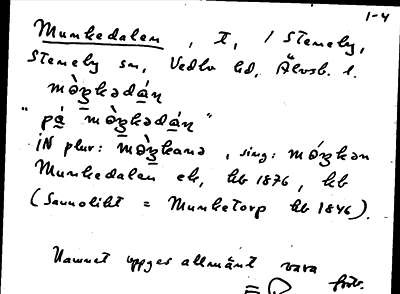 1-4
Munkedalen, I, 1 Steneby,
Steneby sn, Vedbo hd, Älvsb. l.
mòŋkədán
"på mòŋkədán"
iN plur: mòŋkanə, sing: móŋkən
Munkedalen ek, kb 1876, kb
(Sannolikt = Munketorp kb 1846).
Namnet uppges allmänt vara